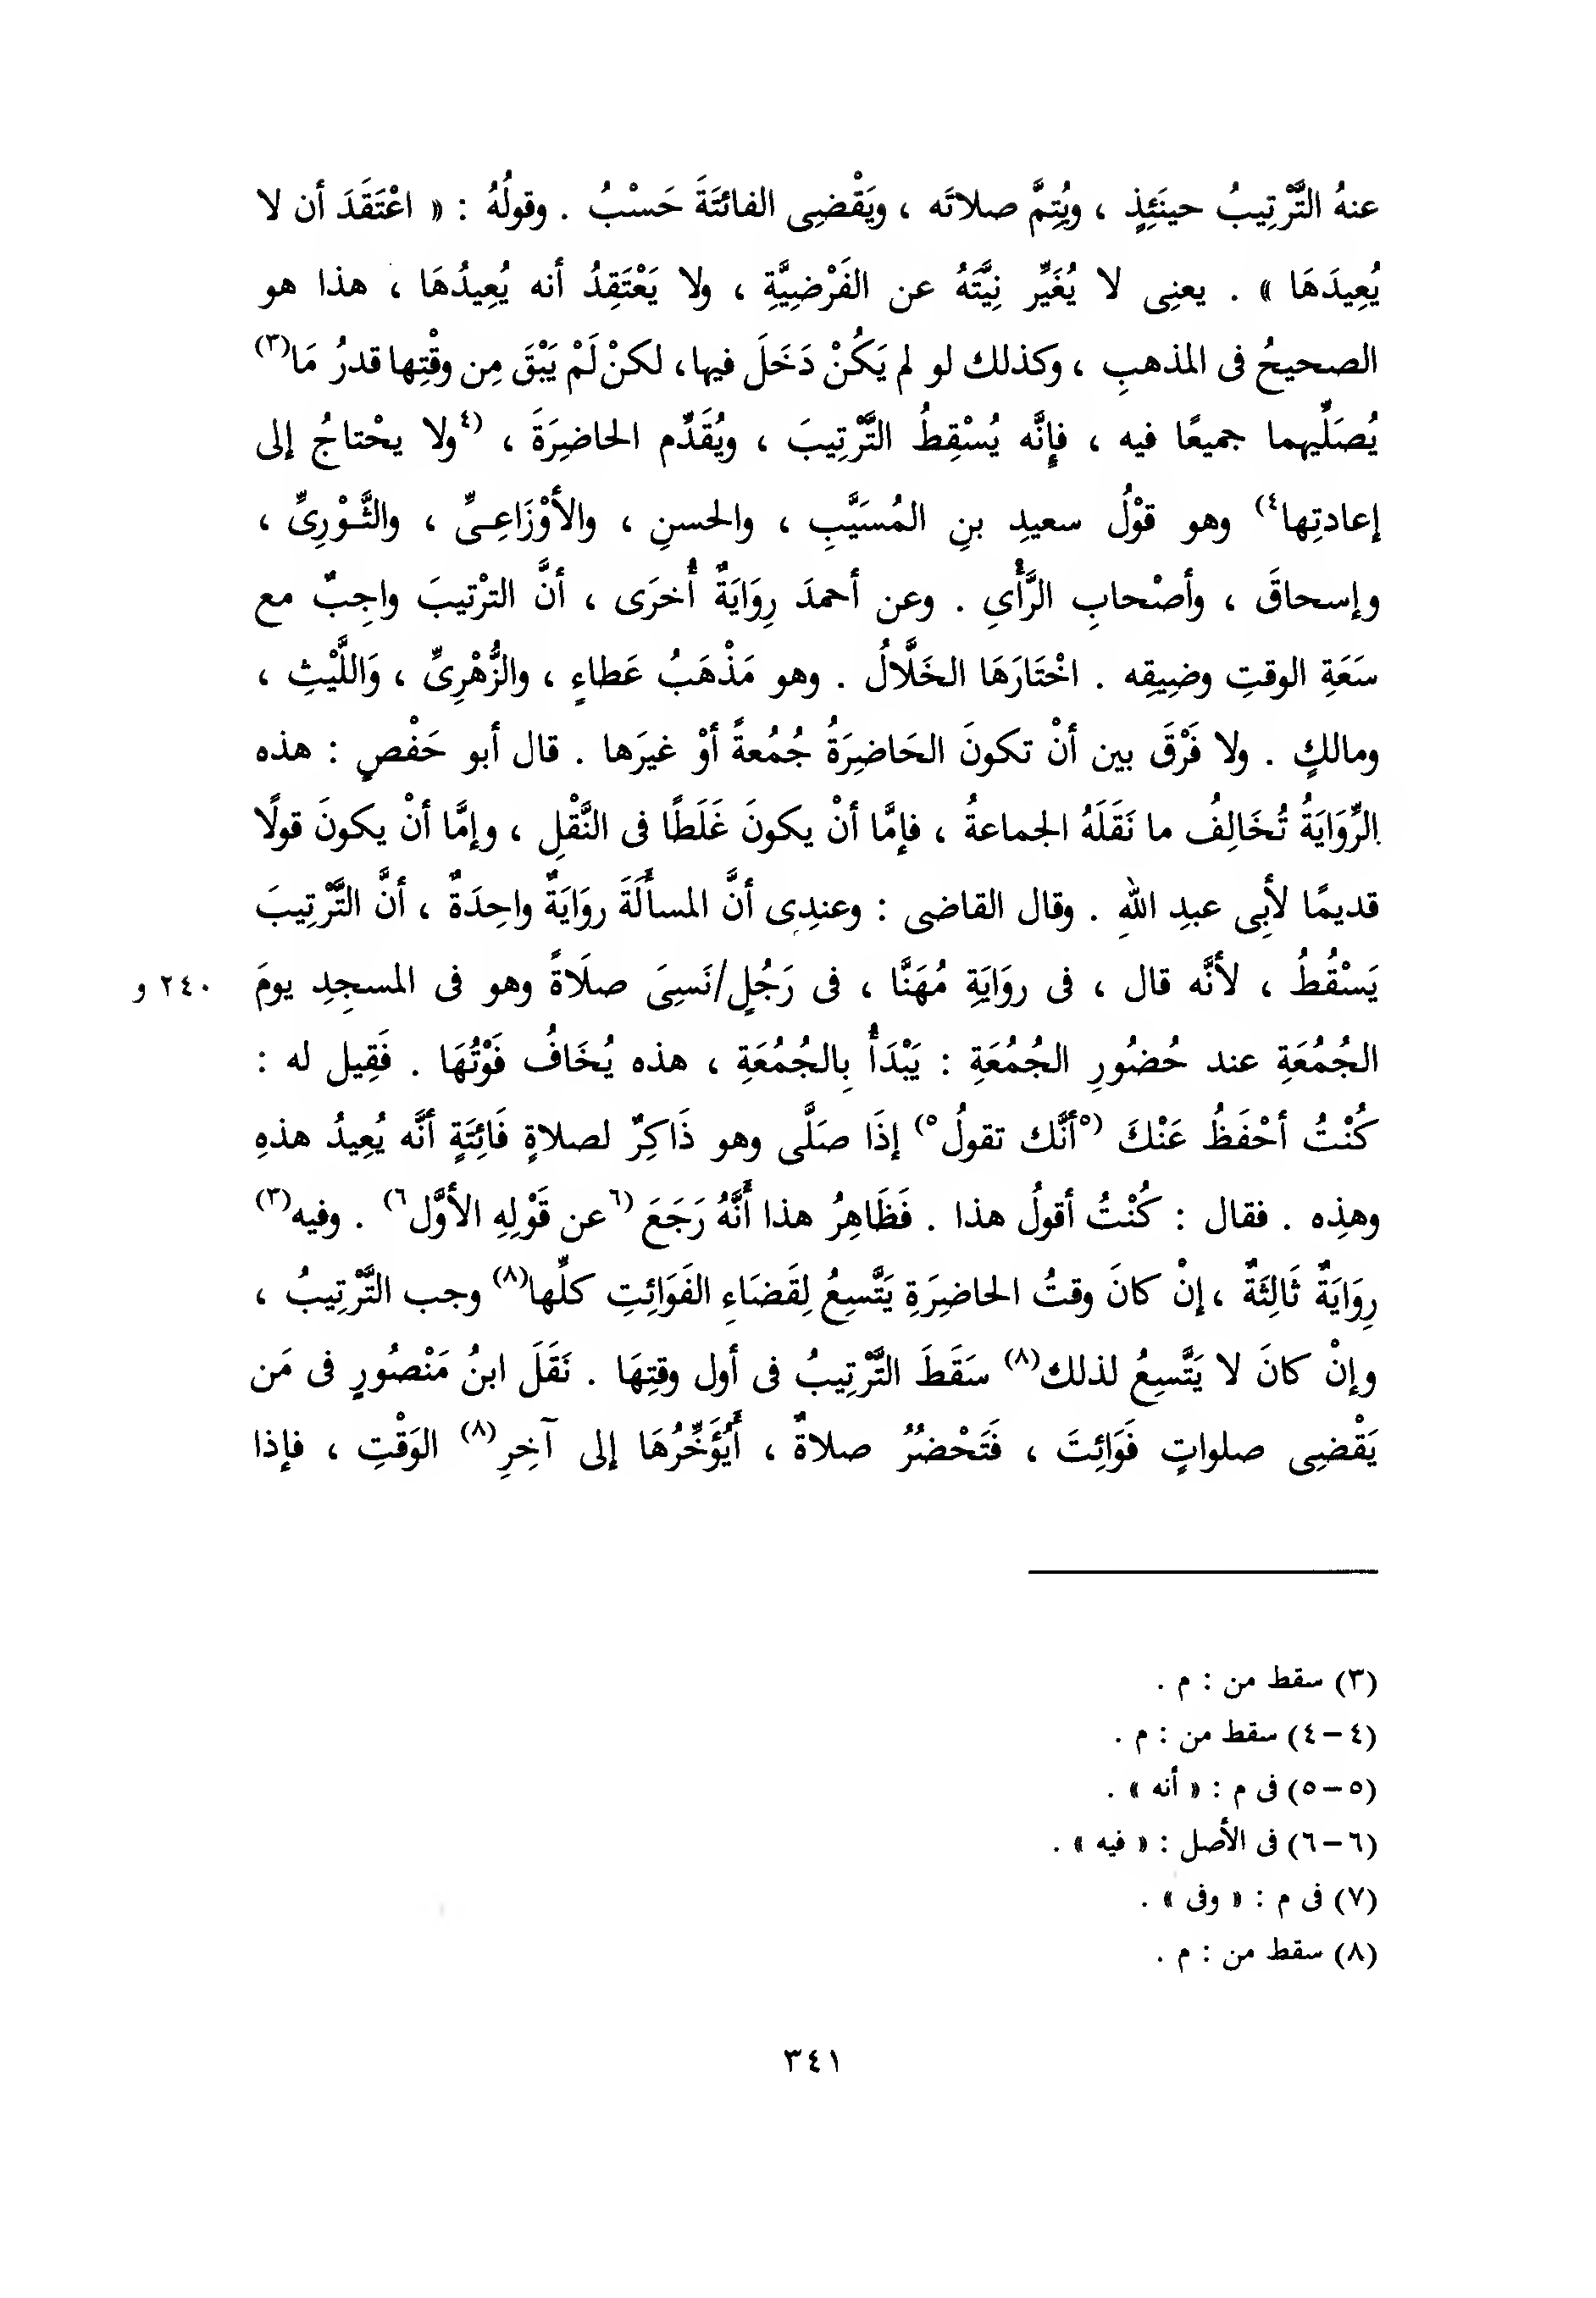 عنهُ التَّرْتِيبُ حينَئِذٍ ، ويُتِمَّ صلاتَه ، ويَقْضِى الفائتَةَ حَسْبُ . وقولُهُ : « اعْتَقَدَ أن لا
يُعِيدَهَا » . يعنِى لا يُغَيِّر نِيَّتَهُ عن الفَرْضِيَّةِ ، ولا يَعْتَقِدُ أنه يُعِيدُهَا ، هذا هو
الصحيحُ فى المذهبِ ، وكذلك لو لم يَكُنْ دَخَلَ فيها، لكنْ لَمْ يَبْقَ مِن وقْتِها قدرُ مَا(٣)
يُصَلِّيهما جميعًا فيه ، فإنَّه يُسْقِطُ التَّرْتِيبَ ، ويُقَدِّم الحاضِرَةَ ، (٤ولا يحْتاجُ إلى
إعادتِها٤) وهو قوْلُ سعيدِ بنِ المُسَيَّبِ ، والحسنِ ، والأوْزَاعِىِّ ، والثَّوْرِىِّ ،
وإسحاقَ ، وأصْحابِ الرَّأْىِ . وعن أحمدَ رِوَايَةٌ أُخرَى ، أنَّ الترْتيبَ واجِبٌ مع
سَعَةِ الوقتِ وضِيقِه . اخْتَارَهَا الخَلَّالُ . وهو مَذْهَبُ عَطاءٍ ، والزُّهْرِىِّ ، وَاللَّيْثِ ،
ومالكٍ . ولا فَرْقَ بين أنْ تكونَ الحَاضِرَةُ جُمُعةً أوْ غيرَها . قال أبو حَفْصٍ : هذه
الرِّوَايَةُ تُخَالِفُ ما نَقَلَهُ الجماعةُ ، فإمَّا أنْ يكونَ غَلَطًا فى النَّقْلِ ، وإمَّا أنْ يكونَ قولًا
قديمًا لأبِى عبدِ اللهِ . وقال القاضى : وعندِى أنَّ المسألَةَ روَايَةٌ واحِدَةٌ ، أنَّ التَّرْتِيبَ
يَسْقُطُ ، لأنَّه قال ، فى روَايَةِ مُهَنَّا ، فى رَجُلٍ/نَسِىَ صلَاةً وهو فى المسجِدِ يومَ ٢٤٠ و
الجُمُعَةِ عند حُضُورِ الجُمُعَةِ : يَبْدَأُ بِالجُمُعَةِ ، هذه يُخَافُ فَوْتُهَا . فَقِيل له :
كُنْتُ أحْفَظُ عَنْكَ (٥أنَّك تقولُ٥) إذَا صَلَّى وهو ذَاكِرٌ لصلاةٍ فَائِتَةٍ أنَّه يُعِيدُ هذهِ
وهذِه . فقال : كُنْتُ أقولُ هذا . فَظَاهِرُ هذا أَنَّهُ رَجَعَ (٦عن قَوْلِهِ الأوَّل٦) . وفيه(٣)
رِوَايَةٌ ثَالِثَةٌ ، إنْ كانَ وقتُ الحاضِرَةِ يَتَّسِعُ لِقَضَاءِ الفَوَائِتِ كلِّها(٨) وجب التَّرْتِيبُ ،
وإنْ كانَ لا يَتَّسِعُ لذلك(٨) سَقَطَ التَّرْتِيبُ فى أول وقتِهَا . نَقَلَ ابنُ مَنْصُورٍ فى مَن
يَقْضِى صلواتٍ فَوَائِتَ ، فَتَحْضُرُ صلاةٌ ، أَيُؤَخِّرُهَا إلى آخِرِ(٨) الوَقْتِ ، فإذا
(٣) سقط من : م .
(٤-٤) سقط من : م .
(٥-٥) فى م : « أنه » .
(٦-٦) فى الأصل : « فيه » .
(٧) فى م : « وفى » .
(٨) سقط من : م .
٣٤١